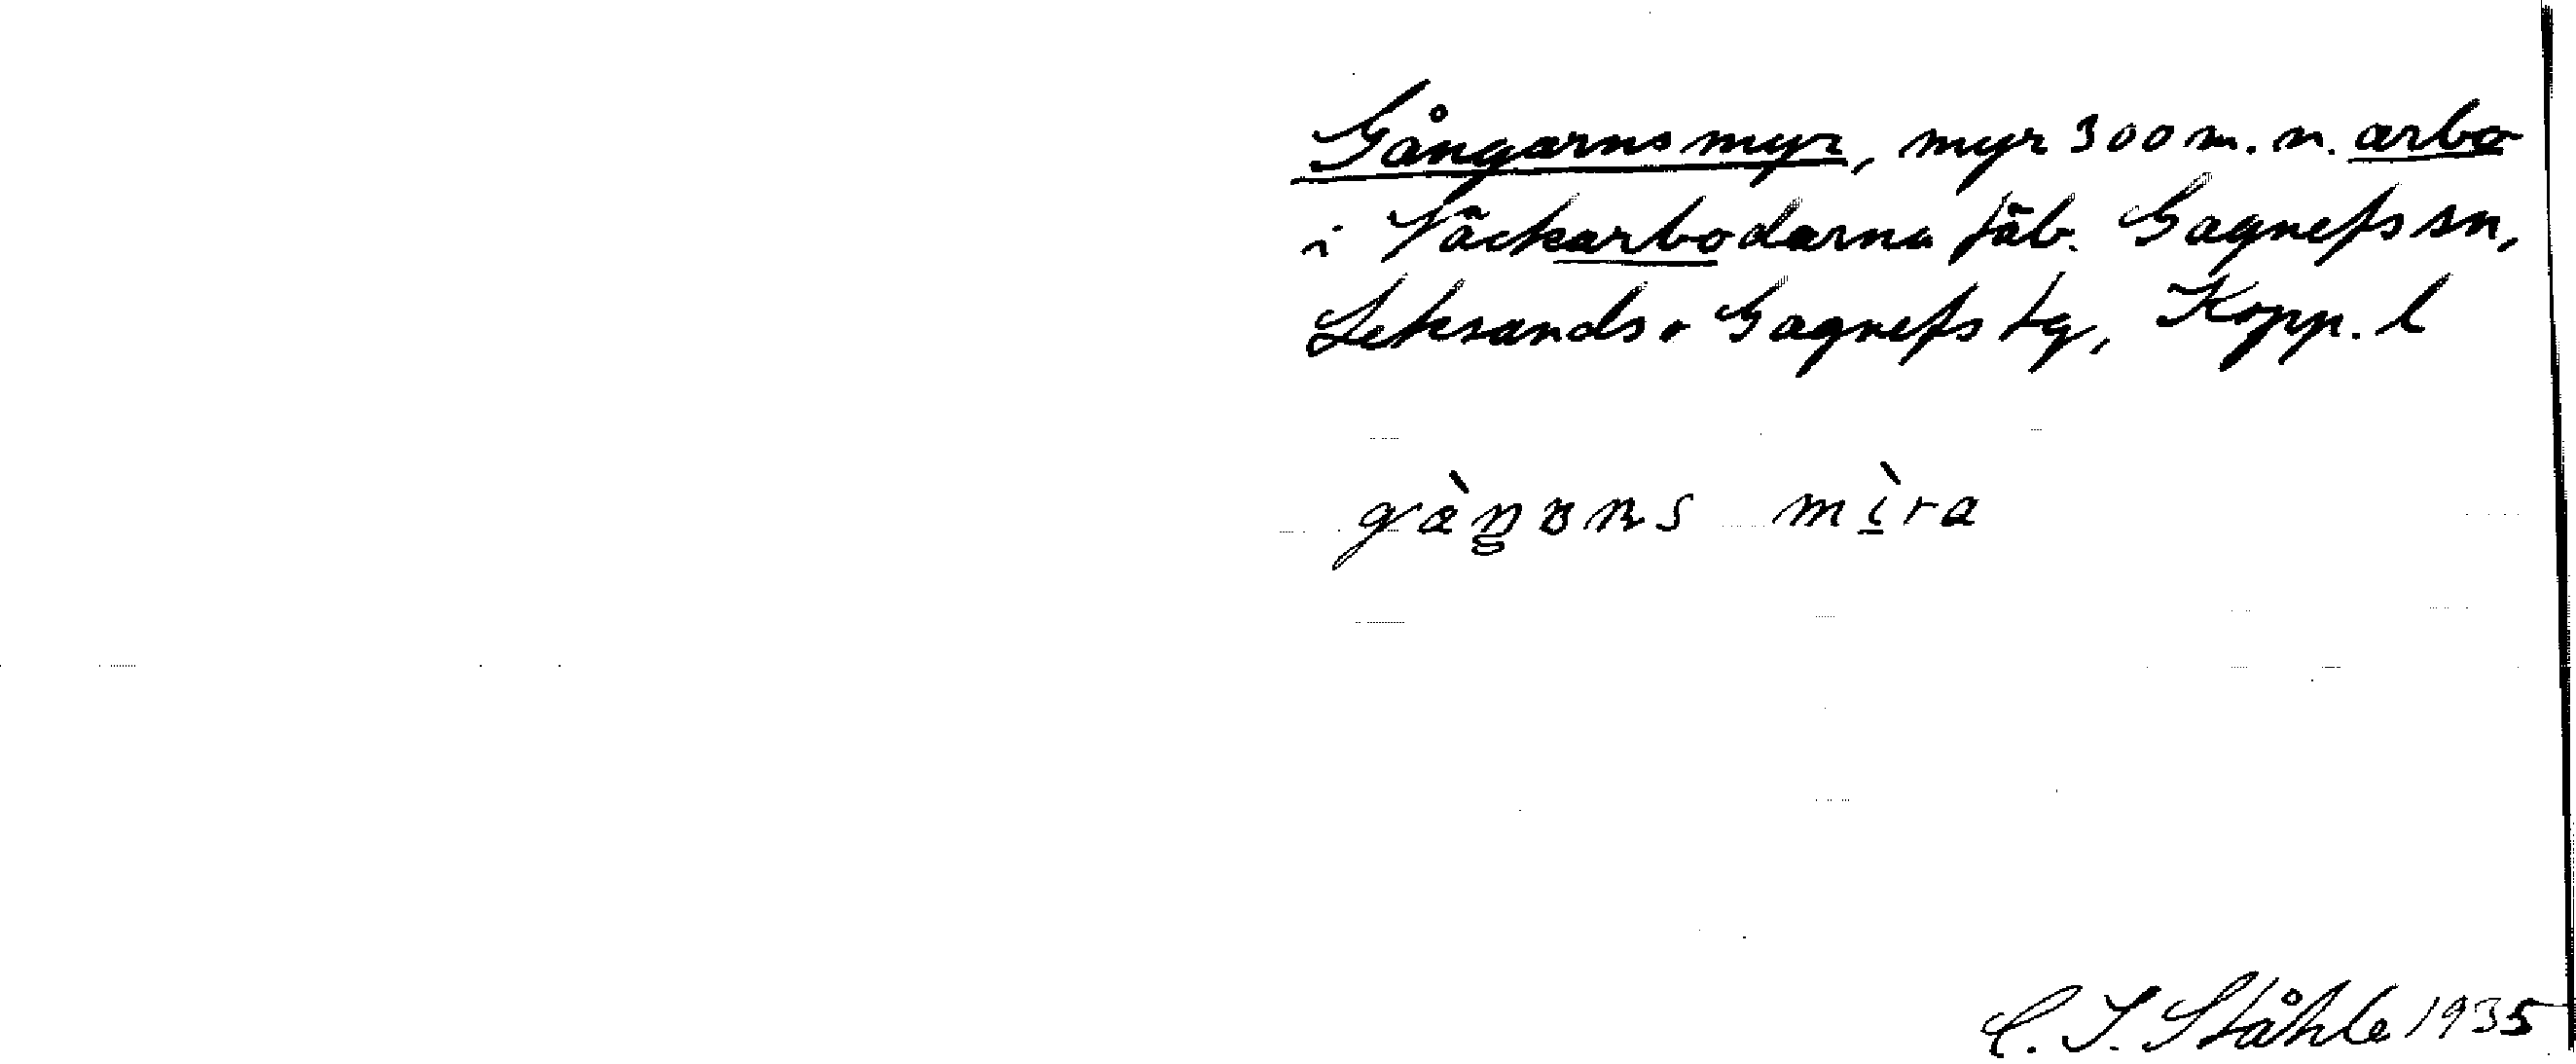 Gångarnsmyr, myr 300 m. n. arbo
i Väckarbodarna fäb. Gagnefs sn,
Leksands o Gagnefs tg, Kopp. l
gàŋɐns mìra
C. I. Ståhle 1935